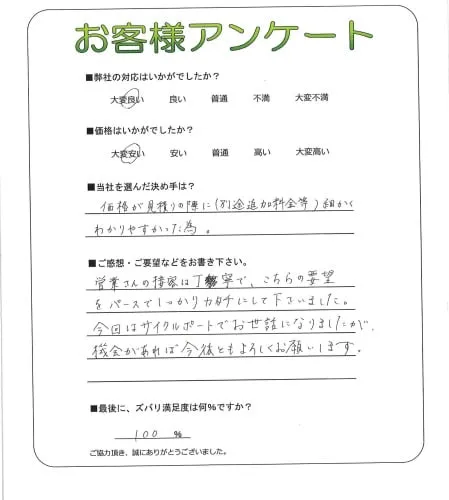 お客様アンケート
■弊社の対応はいかがでしたか?
大変良い 良い 普通 不満 大変不満
■価格はいかがでしたか?
大変安い 安い 普通 高い 大変高い
■当社を選んだ決め手は?
価格が見積りの際に(別途追加料金等)細かく
わかりやすかった為。
■ご感想・ご要望などをお書き下さい。
営業さんの接客は丁寧で、こちらの要望
をパースでしっかりカタチにして下さいました。
今回はサイクルポートでお世話になりましたが、
機会があれば今後ともよろしくお願いします。
■最後に、ズバリ満足度は何%ですか?
100 %
ご協力頂き、誠にありがとうございました。